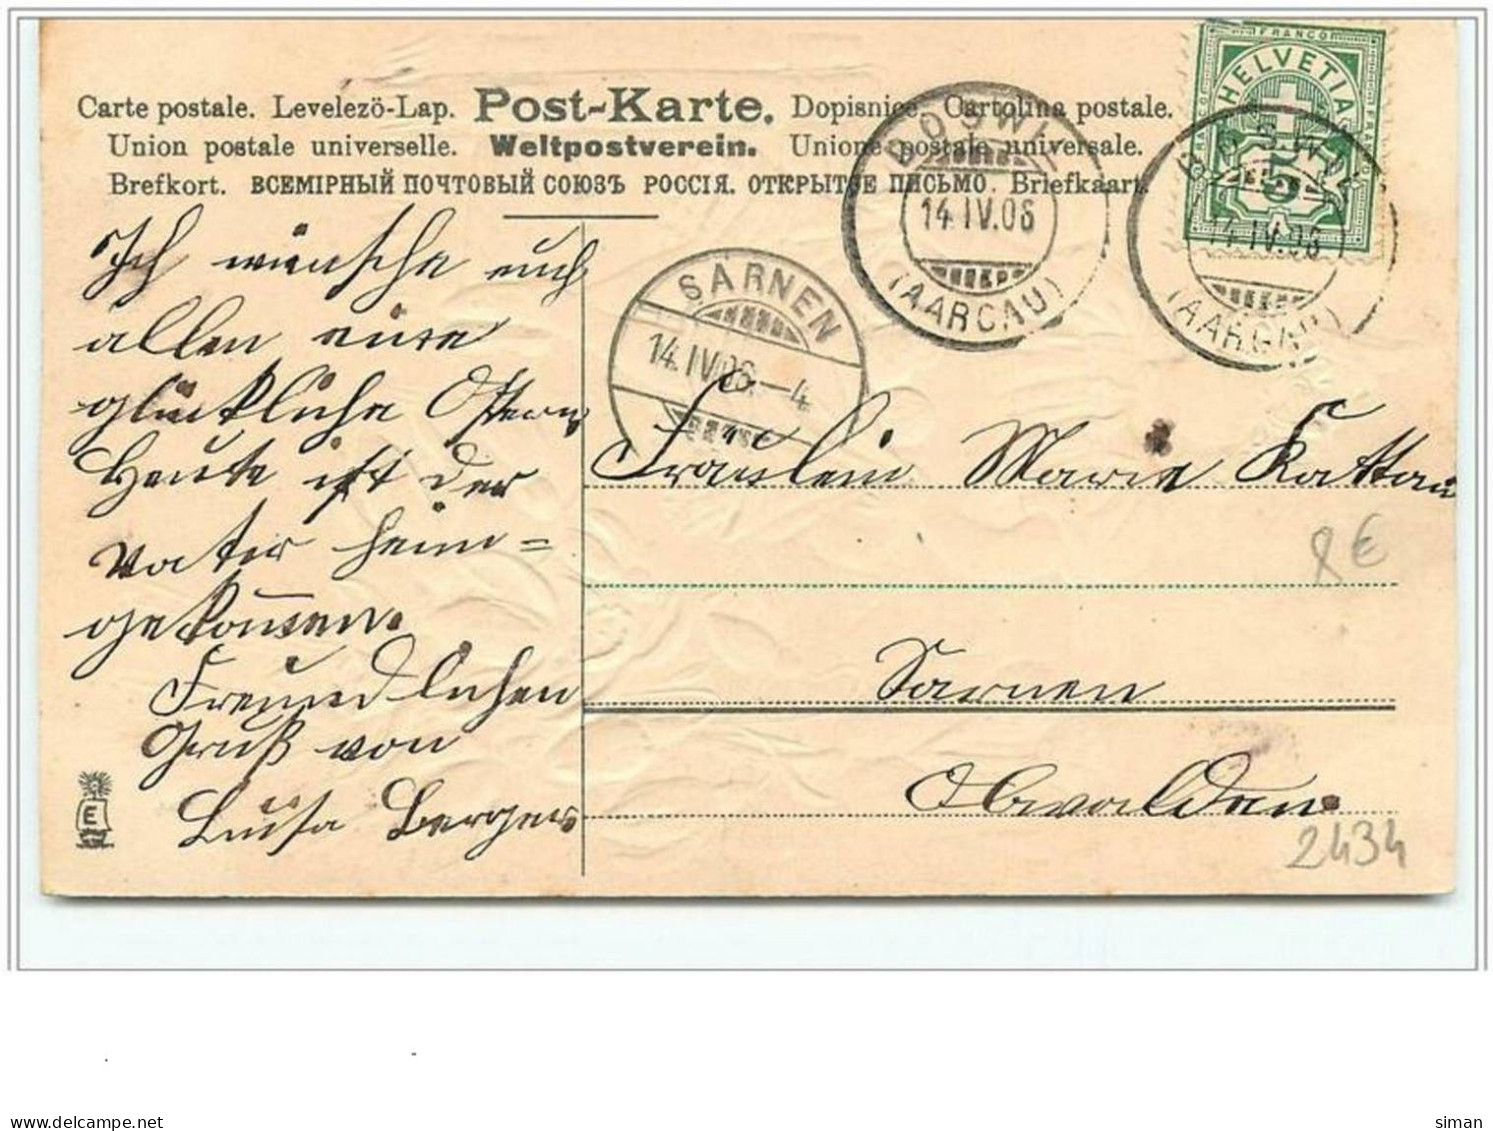 Carte postale. Levelező-Lap. Post-Karte. Dopisnice. Cartolina postale.
Union postale universelle. Weltpostverein. Unione postale universale.
Brefkort. ВСЕМІРНЫЙ ПОЧТОВЫЙ СОЮЗЪ РОССІЯ. ОТКРЫТОЕ ПИСЬМО. Briefkaart.
FRANCO
HELVETIA
5
BOSWIL
14.IV.06
(AARGAU)
BOSWIL
14.IV.06
(AARGAU)
SARNEN
14.IV.06.–4
Ich wünsche euch
allen eine
glückliche Ostern
Heute ist der
Vater heim=
gekommen.
Freundlichen
Gruß von
Luisa Berger
Fräulein Marie
Sarnen
Obwalden.
8€
2434
E
siman